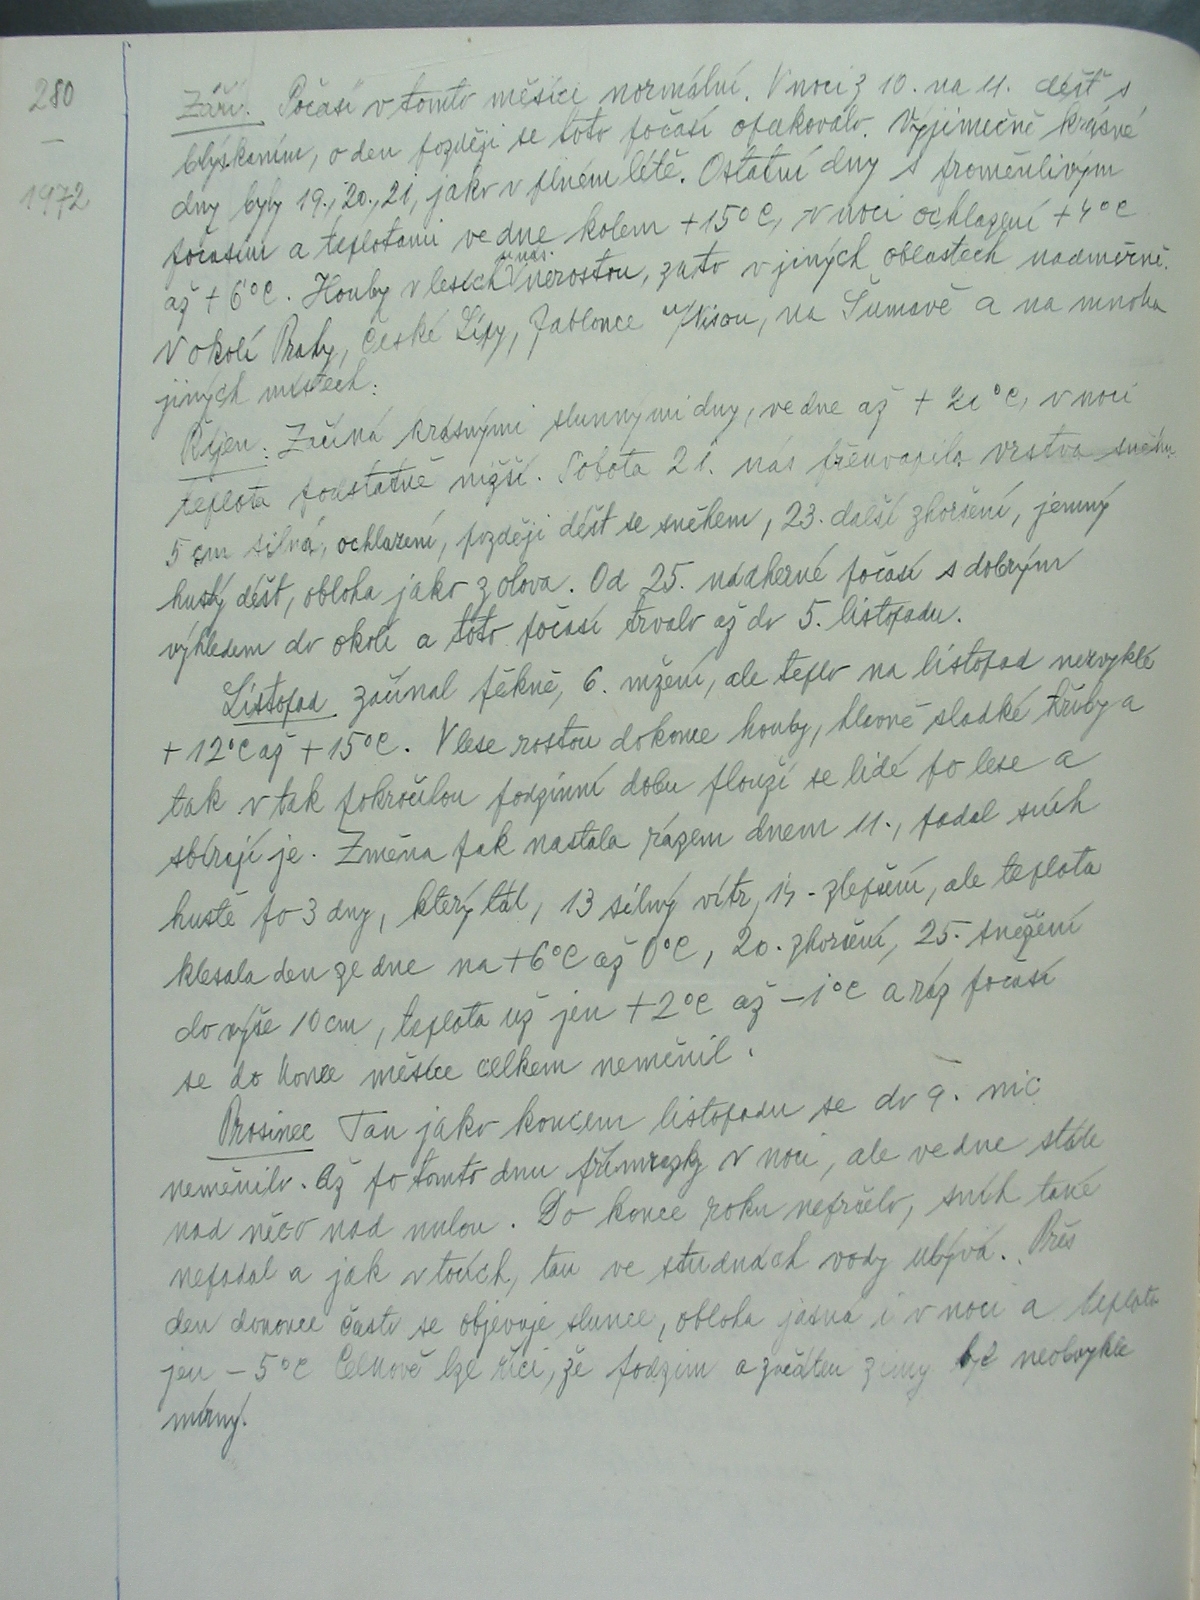 280
—
1972
Září. Počasí v tomto měsíci normální. V noci z 10. na 11. déšť s
blýskáním, o den později se toto počasí opakovalo. Výjimečně krásné
dny byly 19., 20., 21, jako v plném létě. Ostatní dny s proměnlivým
počasím a teplotami ve dne kolem +15°C, v noci ochlazení +4°C
až +6°C. Houby v lesích u nás nerostou, zato v jiných oblastech nadměrně.
V okolí Prahy, České Lípy, Jablonce n/Nisou, na Šumavě a na mnoha
jiných místech.
Říjen: Začíná krásnými slunnými dny, ve dne až + 21°C, v noci
teplota podstatně nižší. Sobota 21. nás překvapila vrstva sněhu
5 cm silná, ochlazení, později déšť se sněhem, 23. další zhoršení, jemný
hustý déšť, obloha jako z olova. Od 25. nádherné počasí s dobrým
výhledem do okolí a toto počasí trvalo až do 5. listopadu.
Listopad začínal pěkně, 6. mžení, ale teplo na listopad nezvyklé
+ 12°C až +15°C. V lese rostou dokonce houby, hlavně sladké hřiby a
tak v tak pokročilou podzimní dobu plouží se lidé po lese a
sbírají je. Změna pak nastala rázem dnem 11., padal sníh
hustě po 3 dny, který tál, 13 silný vítr, 14. zlepšení, ale teplota
klesala den ze dne na +6°C až 0°C, 20. zhoršení, 25. sněžení
do výše 10 cm, teplota už jen +2°C až -1°C a ráz počasí
se do konce měsíce celkem neměnil.
Prosinec Tak jako koncem listopadu se do 9. nic
neměnilo. Až po tomto dnu přímrazky v noci, ale ve dne stále
nad něco nad nulou. Do konce roku nepršelo, sníh také
nepadal a jak v tocích, tak ve studnách vody ubývá. Přes
den dokonce často se objevuje slunce, obloha jasná i v noci a teplota
jen - 5°C Celkově lze říci, že podzim a začátek zimy byl neobvykle
mírný.